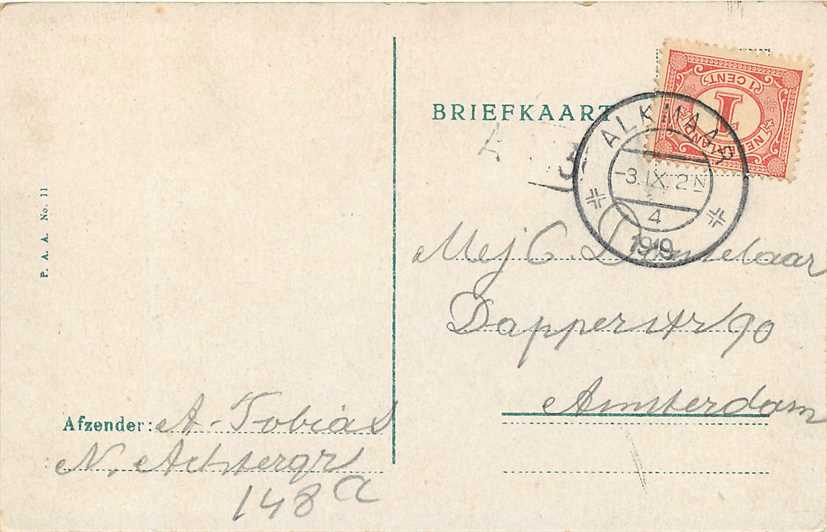 BRIEFKAART
NEDERLAND
1
(1 CENT)
ALKMAAR
-3.IX. 2N
4
1919
P. A. A. No. 11
Mej C.
Dapperstr 90
Amsterdam
Afzender: A. Tobias
N. Achtergr
148a